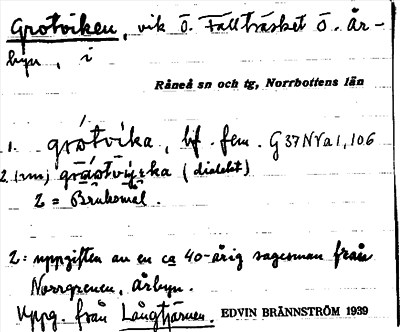 Grotviken, vik Ö. Fällträsket Ö. År-
byn, i
Råneå sn och tg, Norrbottens län
1. grótvika, bf. fem. G37NVa1,106
2. (nn) (dialekt)
2 = Bruksmål.
2: uppgiften av en ca 40-årig sagesman från
Norrgrenen, Årbyn.
Uppg. från Långtjärnen. EDVIN BRÄNNSTRÖM 1939